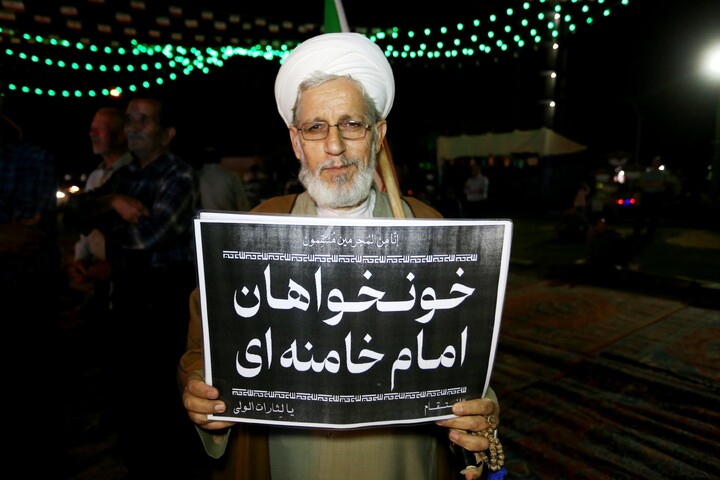 إنّا مِنَ المُجرمینَ مُنتَقِمون
خونخواهان
امام خامنه ای
یا لثارات الولی
#انتقام